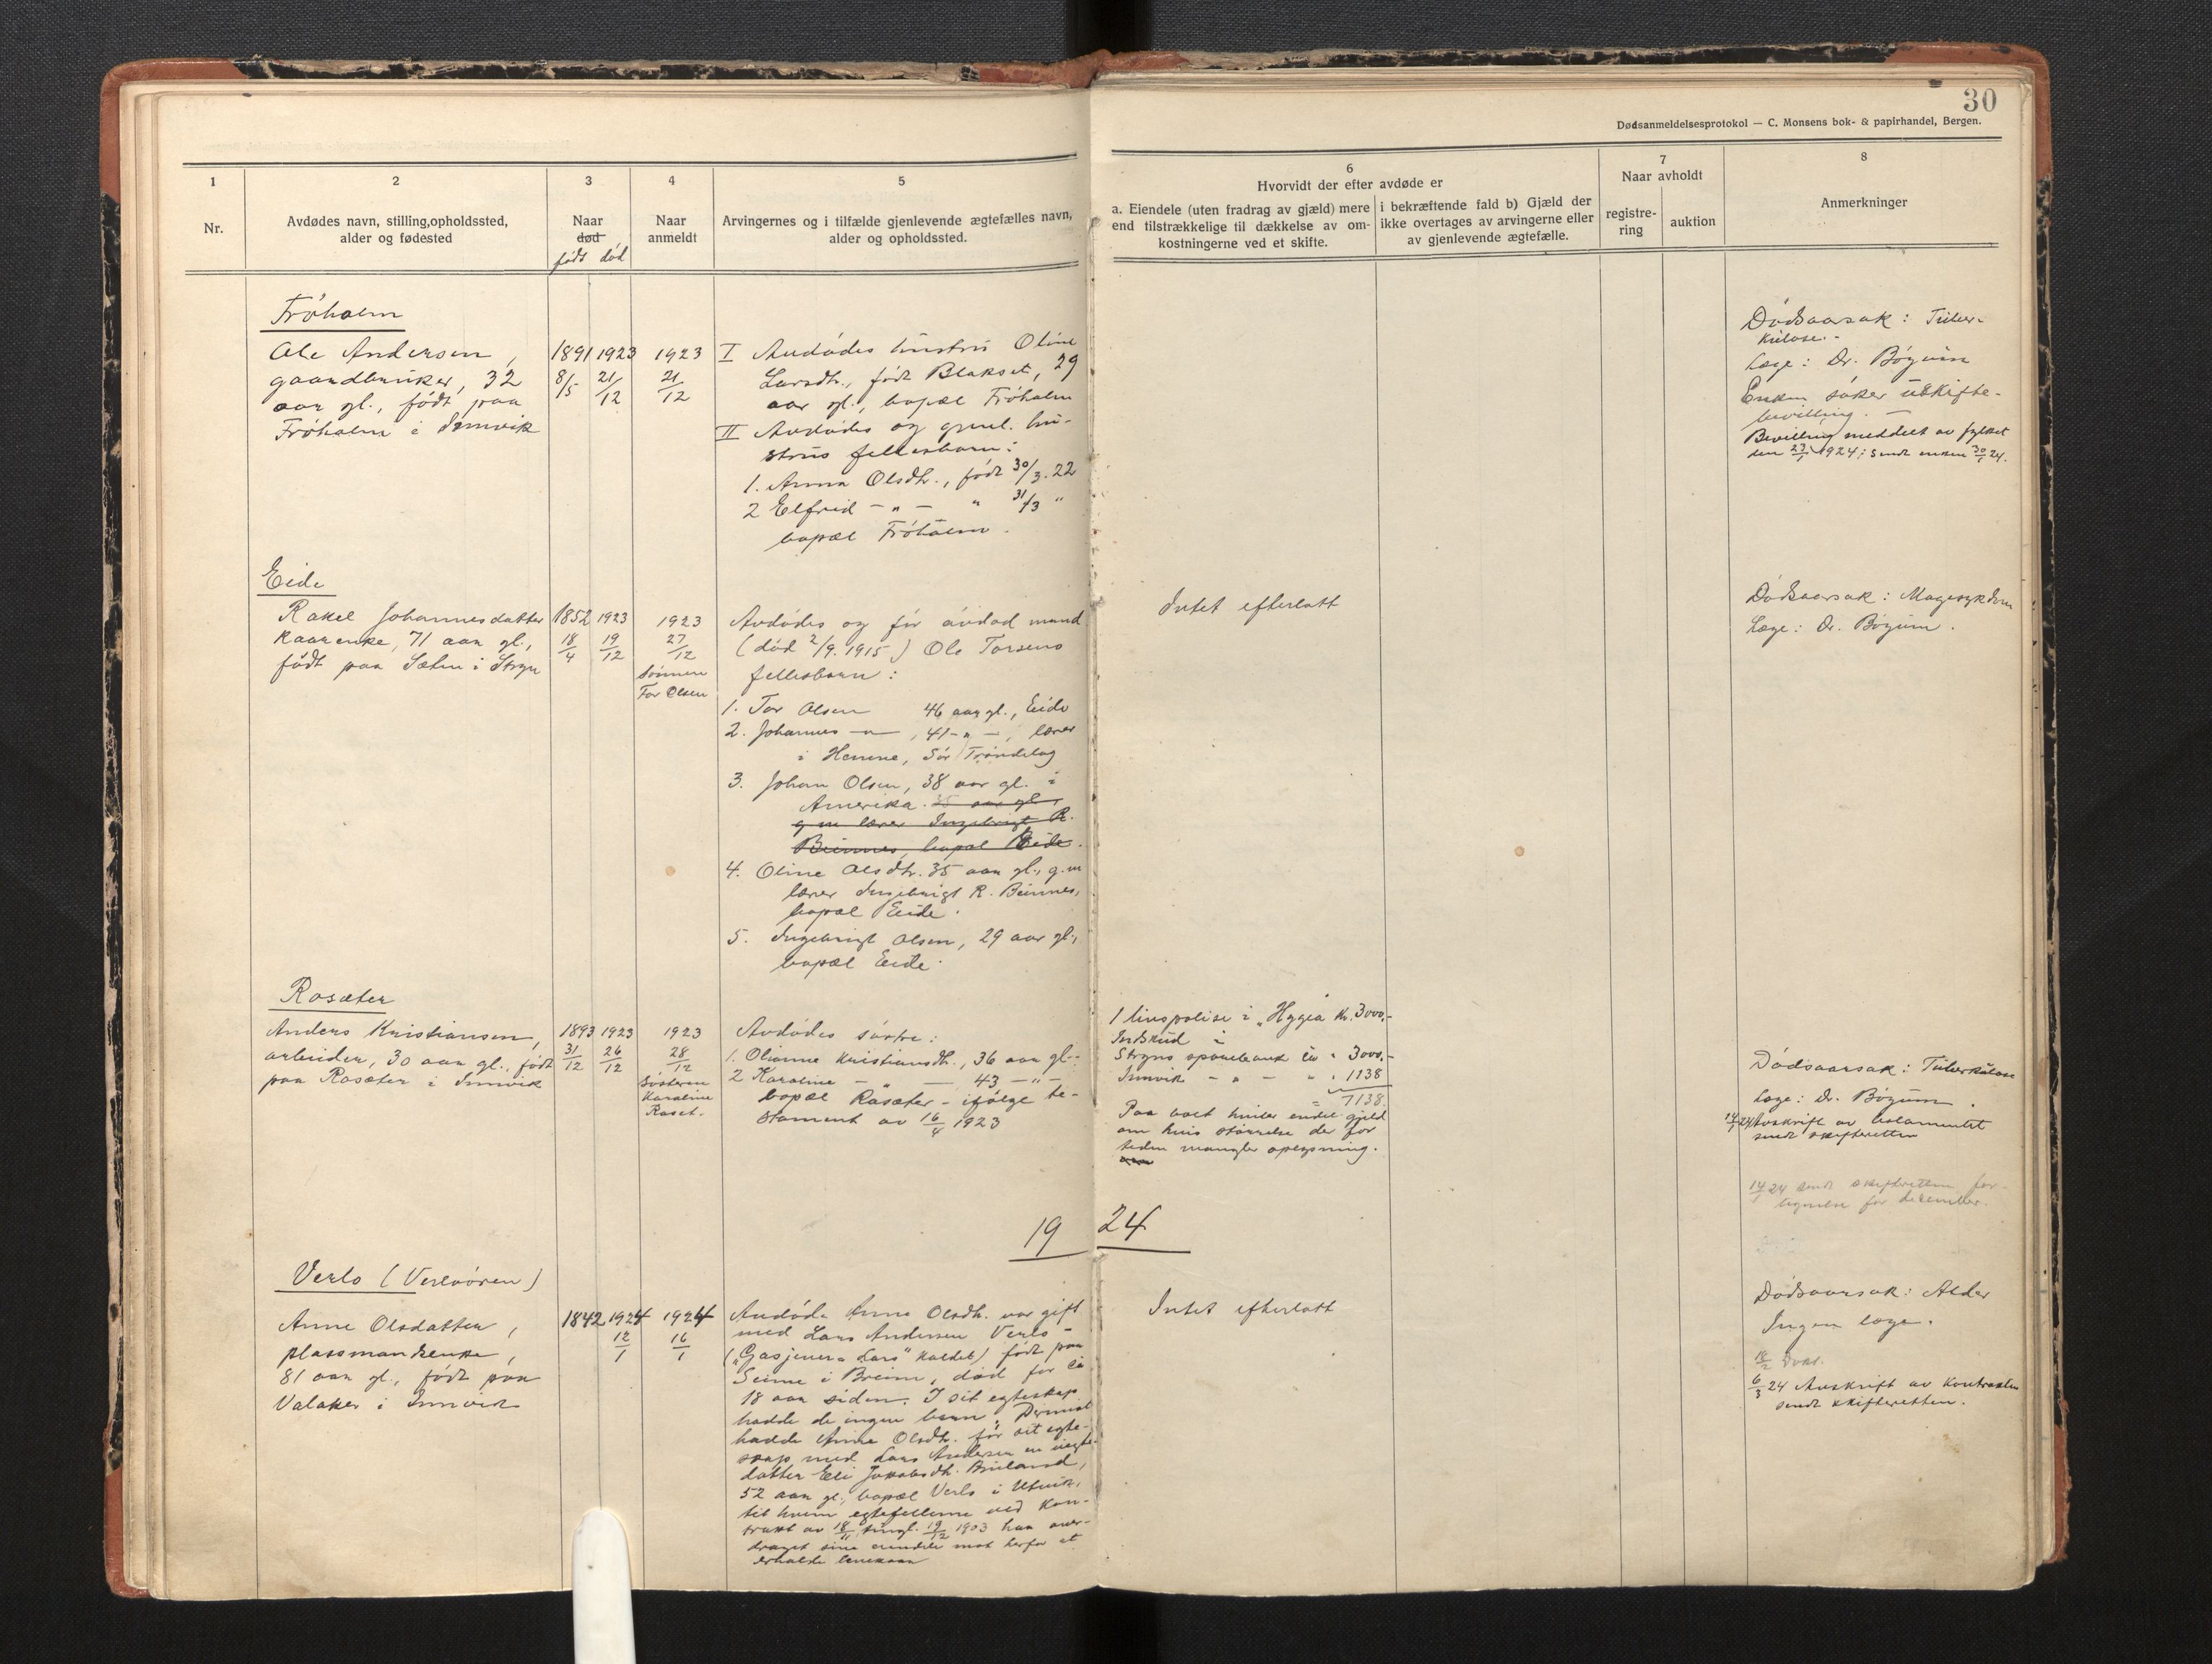 30
Dødsanmeldelsesprotokol — C. Monsens bok- & papirhandel, Bergen.
1
Nr.
2
Avdødes navn, stilling, opholdssted,
alder og fødested
3
Naar
død
født død
4
Naar
anmeldt
5
Arvingernes og i tilfælde gjenlevende ægtefælles navn,
alder og opholdssted.
6
Hvorvidt der efter avdøde er
a. Eiendele (uten fradrag av gjæld) mere
end tilstrækkelige til dækkelse av om-
kostningerne ved et skifte.
i bekræftende fald b) Gjæld der
ikke overtages av arvingerne eller
av gjenlevende ægtefælle.
7
Naar avholdt
registre-
ring
auktion
8
Anmerkninger
Frøholm
Ole Andersen,
gaardbruker, 32
aar gl., født paa
Frøholm i Innvik
1891 1923
8/5 21/12
1923
21/12
I Avdødes hustru Oline
Larsdtr., født Blakset, 29
aar gl., bopæl Frøholm
II Avdødes og gjenl. hu-
strus fellesbarn:
1. Anna Olsdtr., født 30/3. 22
2 Elfrid — " — " 31/3 "
bopæl Frøholm.
Dødsaarsak: Tuber-
kulose.-
Læge: Dr. Bøyum
Enken søker uskifte-
bevilling. —
Bevilling meddelt av fylket
den 23/1 1924; sendt enken 30/1 24.
Eide
Rakel Johannesdatter
kaarenke, 71 aar gl.,
født paa Sæten i Stryn
1852 1923
18/4 19/12
1923
27/12
Sønnen
Tor Olsen
Avdødes og før avdød mand
(død 2/9. 1915) Ole Torsens
fellesbarn:
1. Tor Olsen 46 aar gl., Eide
2. Johannes — " — , 41 — " — , lærer
i Hemne, Sør Trøndelag
3. Johan Olsen, 38 aar gl. i
Amerika. 35 aar gl.,
g.m. lærer Ingebrigt R.
Beinnes, bopæl Eide.
4. Oline Olsdtr. 35 aar gl., g.m
lærer Ingebrigt R. Beinnes,
bopæl Eide.
5. Ingebrigt Olsen, 29 aar gl.,
bopæl Eide.
Intet efterlatt
Dødsaarsak: Magesykdom
Læge: Dr. Bøyum.
Rosæter
Anders Kristiansen,
arbeider, 30 aar gl., født
paa Rosæter i Innvik
1893 1923
31/12 26/12
1923
28/12
Søsteren
Karoline
Roset.
Avdødes søstre:
1. Olianne Kristiansdtr., 36 aar gl.
2 Karoline — " — 43 — " —
bopæl Rosæter - ifølge te-
stament av 16/4 1923
1 livspolise i „Hygea kr. 3000.-
Indskud i
Stryns sparebank ca " 3000.-
Innvik — " — " " 1138
= 7138.
Paa boet hviler endel gjæld
om hvis størrelse der for
tiden mangler oplysning.
Dødsaarsak: Tuberkulose
Læge: Dr. Bøyum.
14/1 24 Avskrift av testamentet
sendt skifteretten
14/1 24 sendt skifteretten for-
tegnelse for december.
19 24
Verlo (Verloøren)
Anne Olsdatter,
plassmandsenke,
81 aar gl., født paa
Valaker i Innvik
1842 1924
12/1
1924
16/1
Avdøde Anne Olsdtr. var gift
med Lars Andersen Verlo -
(„Gasjener Lars" kaldet) født paa
Seime i Breim, død for ca
18 aar siden. I sit egteskap
hadde de ingen barn. Derimot
hadde Anne Olsdtr. før sit egte-
skap med Lars Andersen en uegte
datter Eli Jakobsdtr.
52 aar gl., bopæl Verlo i Utvik,
til hvem egtefellerne ved kon-
trakt av 18/11, tingl. 19/12 1903 har over-
draget sine eiendele mot herfor at
erholde levekaar
Intet efterlatt
Dødsaarsak: Alder
Ingen læge.
18/2
6/3 24 Avskrift av kontrakten
sendt skifteretten.